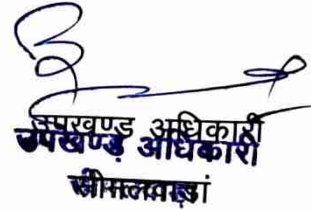 उपखण्ड अधिकारी
उपखण्ड अधिकारी
सीमलवाड़ा